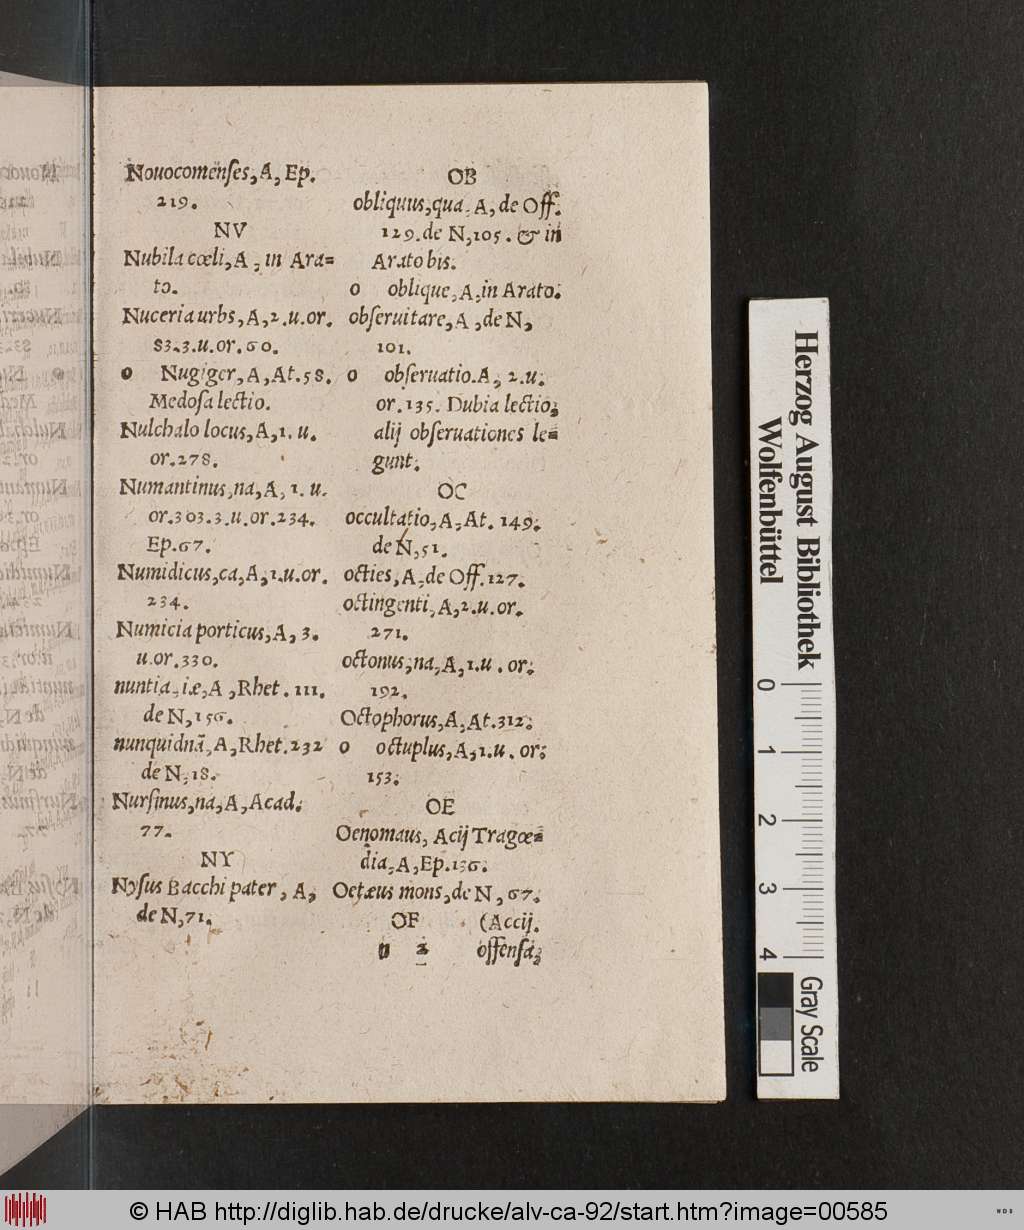 Nouocomenſes, A, Ep.
219.
NV
Nubila cœli, A, in Ara=
to.
Nuceria urbs, A, 2.u.or.
83.3.u.or.60.
o Nugiger, A, At.58.
Medoſa lectio.
Nulchalo locus, A, 1.u.
or.278.
Numantinus, na, A, 1.u.
or.303.3.u.or.234.
Ep.67.
Numidicus, ca, A, 1.u.or.
234.
Numicia porticus, A, 3.
u.or.330.
nuntia, iæ, A, Rhet. 111.
de N, 156.
nunquidnā, A, Rhet.232
de N, 18.
Nurſinus, na, A, Acad.
77.
NY
Nyſus Bacchi pater, A,
de N, 71.
OB
obliquus, qua, A, de Off.
129. de N, 105. & in
Arato bis.
o oblique, A, in Arato.
obſeruitare, A, de N,
101.
o obſeruatio. A, 2.u.
or.135. Dubia lectio,
alij obſeruationes le=
gunt.
OC
occultatio, A, At. 149.
de N, 51.
octies, A, de Off. 127.
octingenti, A, 2.u.or.
271.
octonus, na, A, 1.u.or.
192.
Octophorus, A, At.312.
o octuplus, A, 1.u.or.
153.
OE
Oenomaus, Acij Tragœ=
dia, A, Ep.136.
Oetæus mons, de N, 67.
OF (Accij.
υ 2 offenſa,
Herzog August Bibliothek
Wolfenbüttel
0 1 2 3 4
Gray Scale
© HAB http://diglib.hab.de/drucke/alv-ca-92/start.htm?image=00585